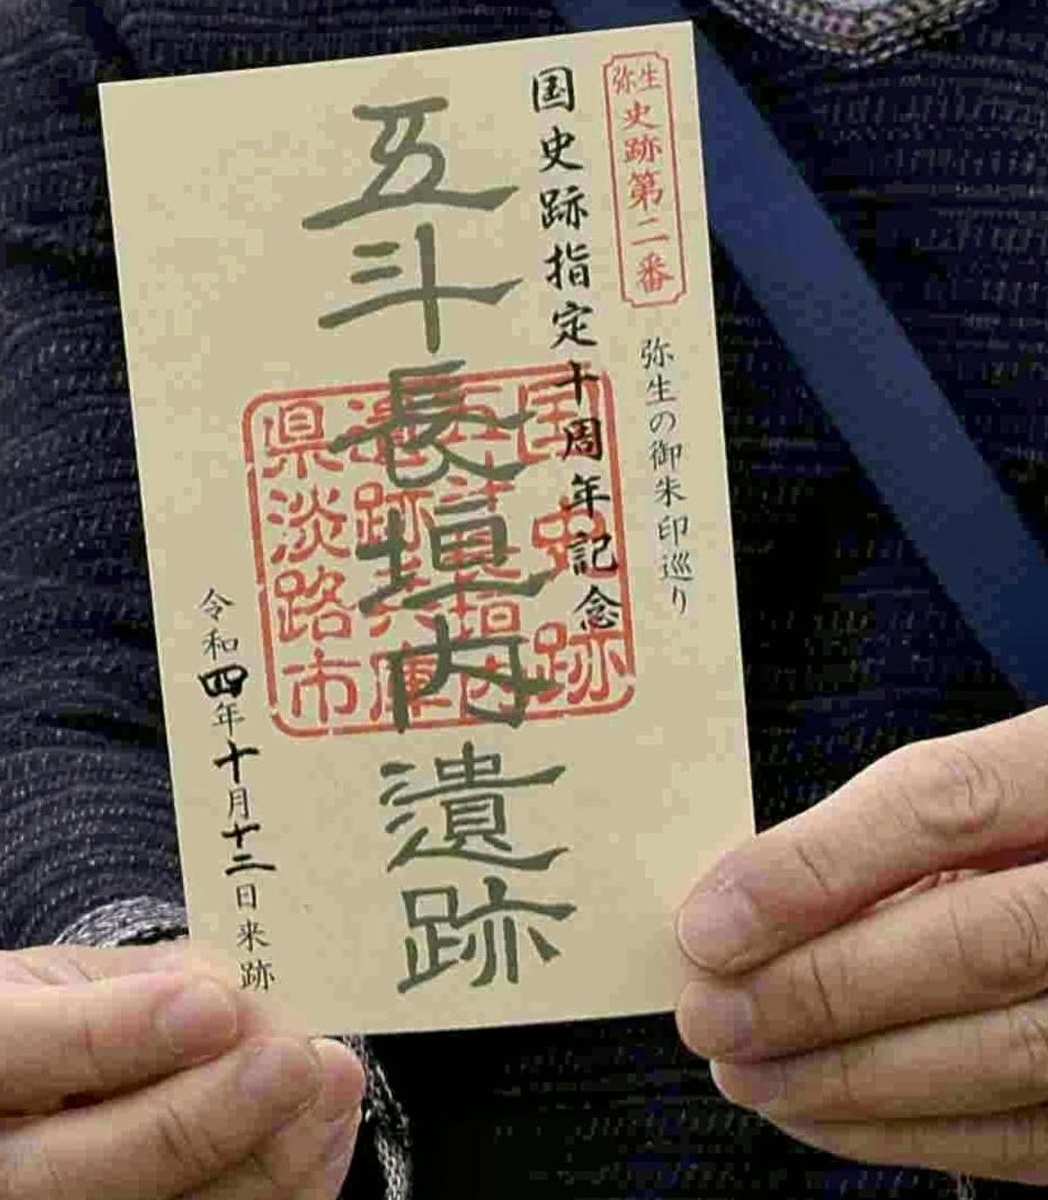 弥生史跡第二番
弥生の御朱印巡り
国史跡指定十周年記念
五斗長垣内遺跡
国史跡
五斗長垣内
遺跡兵庫
県淡路市
令和四年十月十二日来跡